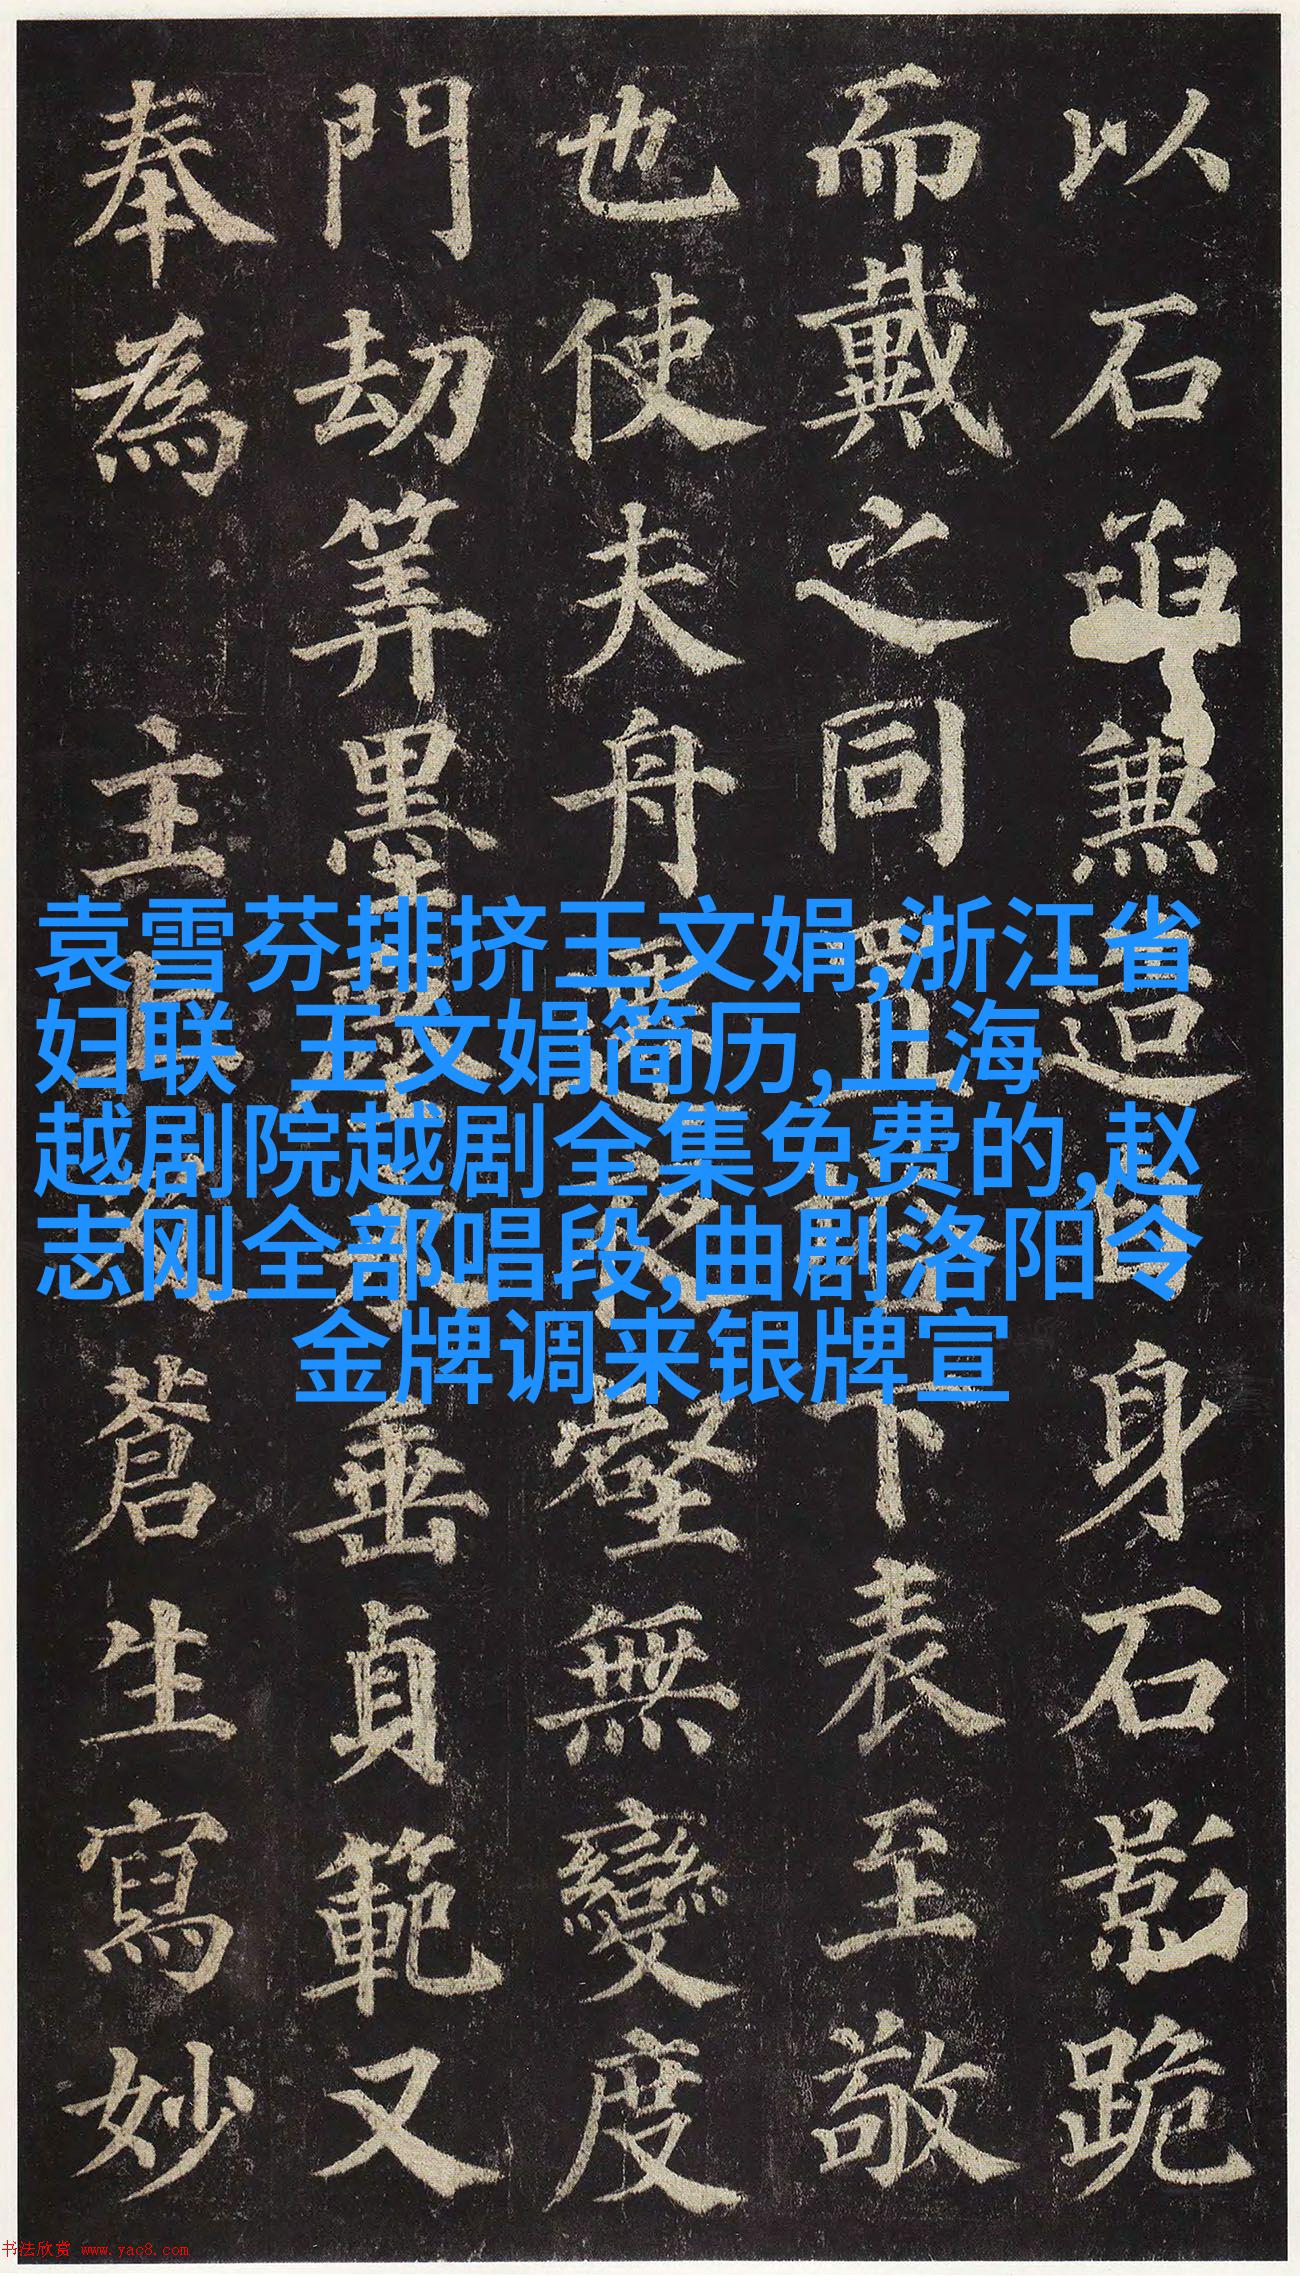 以石函兼造自身石影跪
而戴之同置塔下表至敬
也使夫舟遷夜壑無變度
門劫筭墨塵永垂貞範又
奉為主上及蒼生寫妙
袁雪芬排挤王文娟,浙江省
妇联 王文娟简历,上海
越剧院越剧全集免费的,赵
志刚全部唱段,曲剧洛阳令
金牌调来银牌宣
书法欣赏 www.yac8.com